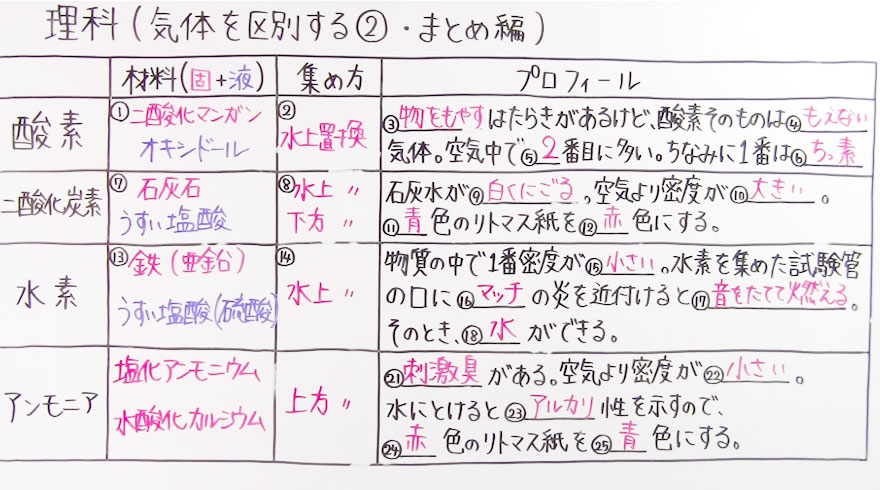 理科(気体を区別する②・まとめ編)
材料(固+液) 集め方 プロフィール
酸素
①二酸化マンガン
オキシドール
②
水上置換
③物をもやすはたらきがあるけど、酸素そのものは④もえない
気体。空気中で⑤2番目に多い。ちなみに1番は⑥ちっ素
二酸化炭素
⑦石灰石
うすい塩酸
⑧水上〃
下方〃
石灰水が⑨白くにごる。空気より密度が⑩大きい。
⑪青色のリトマス紙を⑫赤色にする。
水素
⑬鉄(亜鉛)
うすい塩酸(硫酸)
⑭
水上〃
物質の中で1番密度が⑮小さい。水素を集めた試験管
の口に⑯マッチの炎を近付けると⑰音をたてて燃える。
そのとき、⑱水ができる。
アンモニア
塩化アンモニウム
水酸化カルシウム
上方〃
㉑刺激臭がある。空気より密度が㉒小さい。
水にとけると㉓アルカリ性を示すので、
㉔赤色のリトマス紙を㉕青色にする。